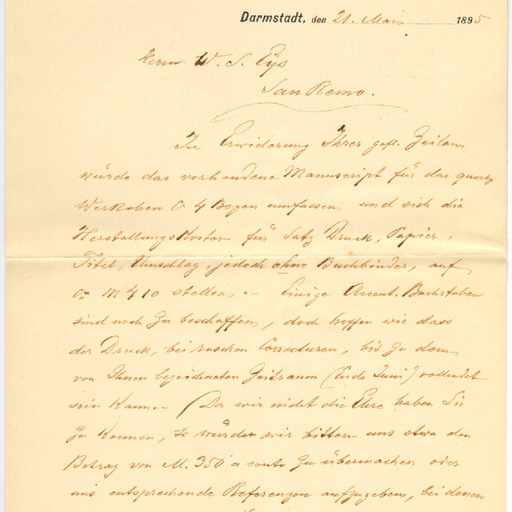 Darmstadt, den 21. Mai 1895
Herrn W. S. Eys
San Remo.
In Erwiderung Ihrer gefl. Zeilen
würde das vorhandene Manuscript für das ganze
Werkchen 4 Bogen umfassen und sich die
Herstellungskosten für Satz Druck, Papier,
Titel, Umschlag, jedoch ohne Buchbinder, auf
ca M 410 stellen. – Einige Accent, Buchstaben
sind noch zu beschaffen, doch hoffen wir dass
der Druck, bei raschen Correcturen, bis zu dem
von Ihnen bezeichneten Zeitraum (Ende Juni) vollendet
sein kann. – Da wir nicht die Ehre haben Sie
zu kennen, so würden wir bitten uns etwa den
Betrag von M. 350 a conto zu übermachen oder
uns entsprechende Referenzen aufzugeben, bei denen